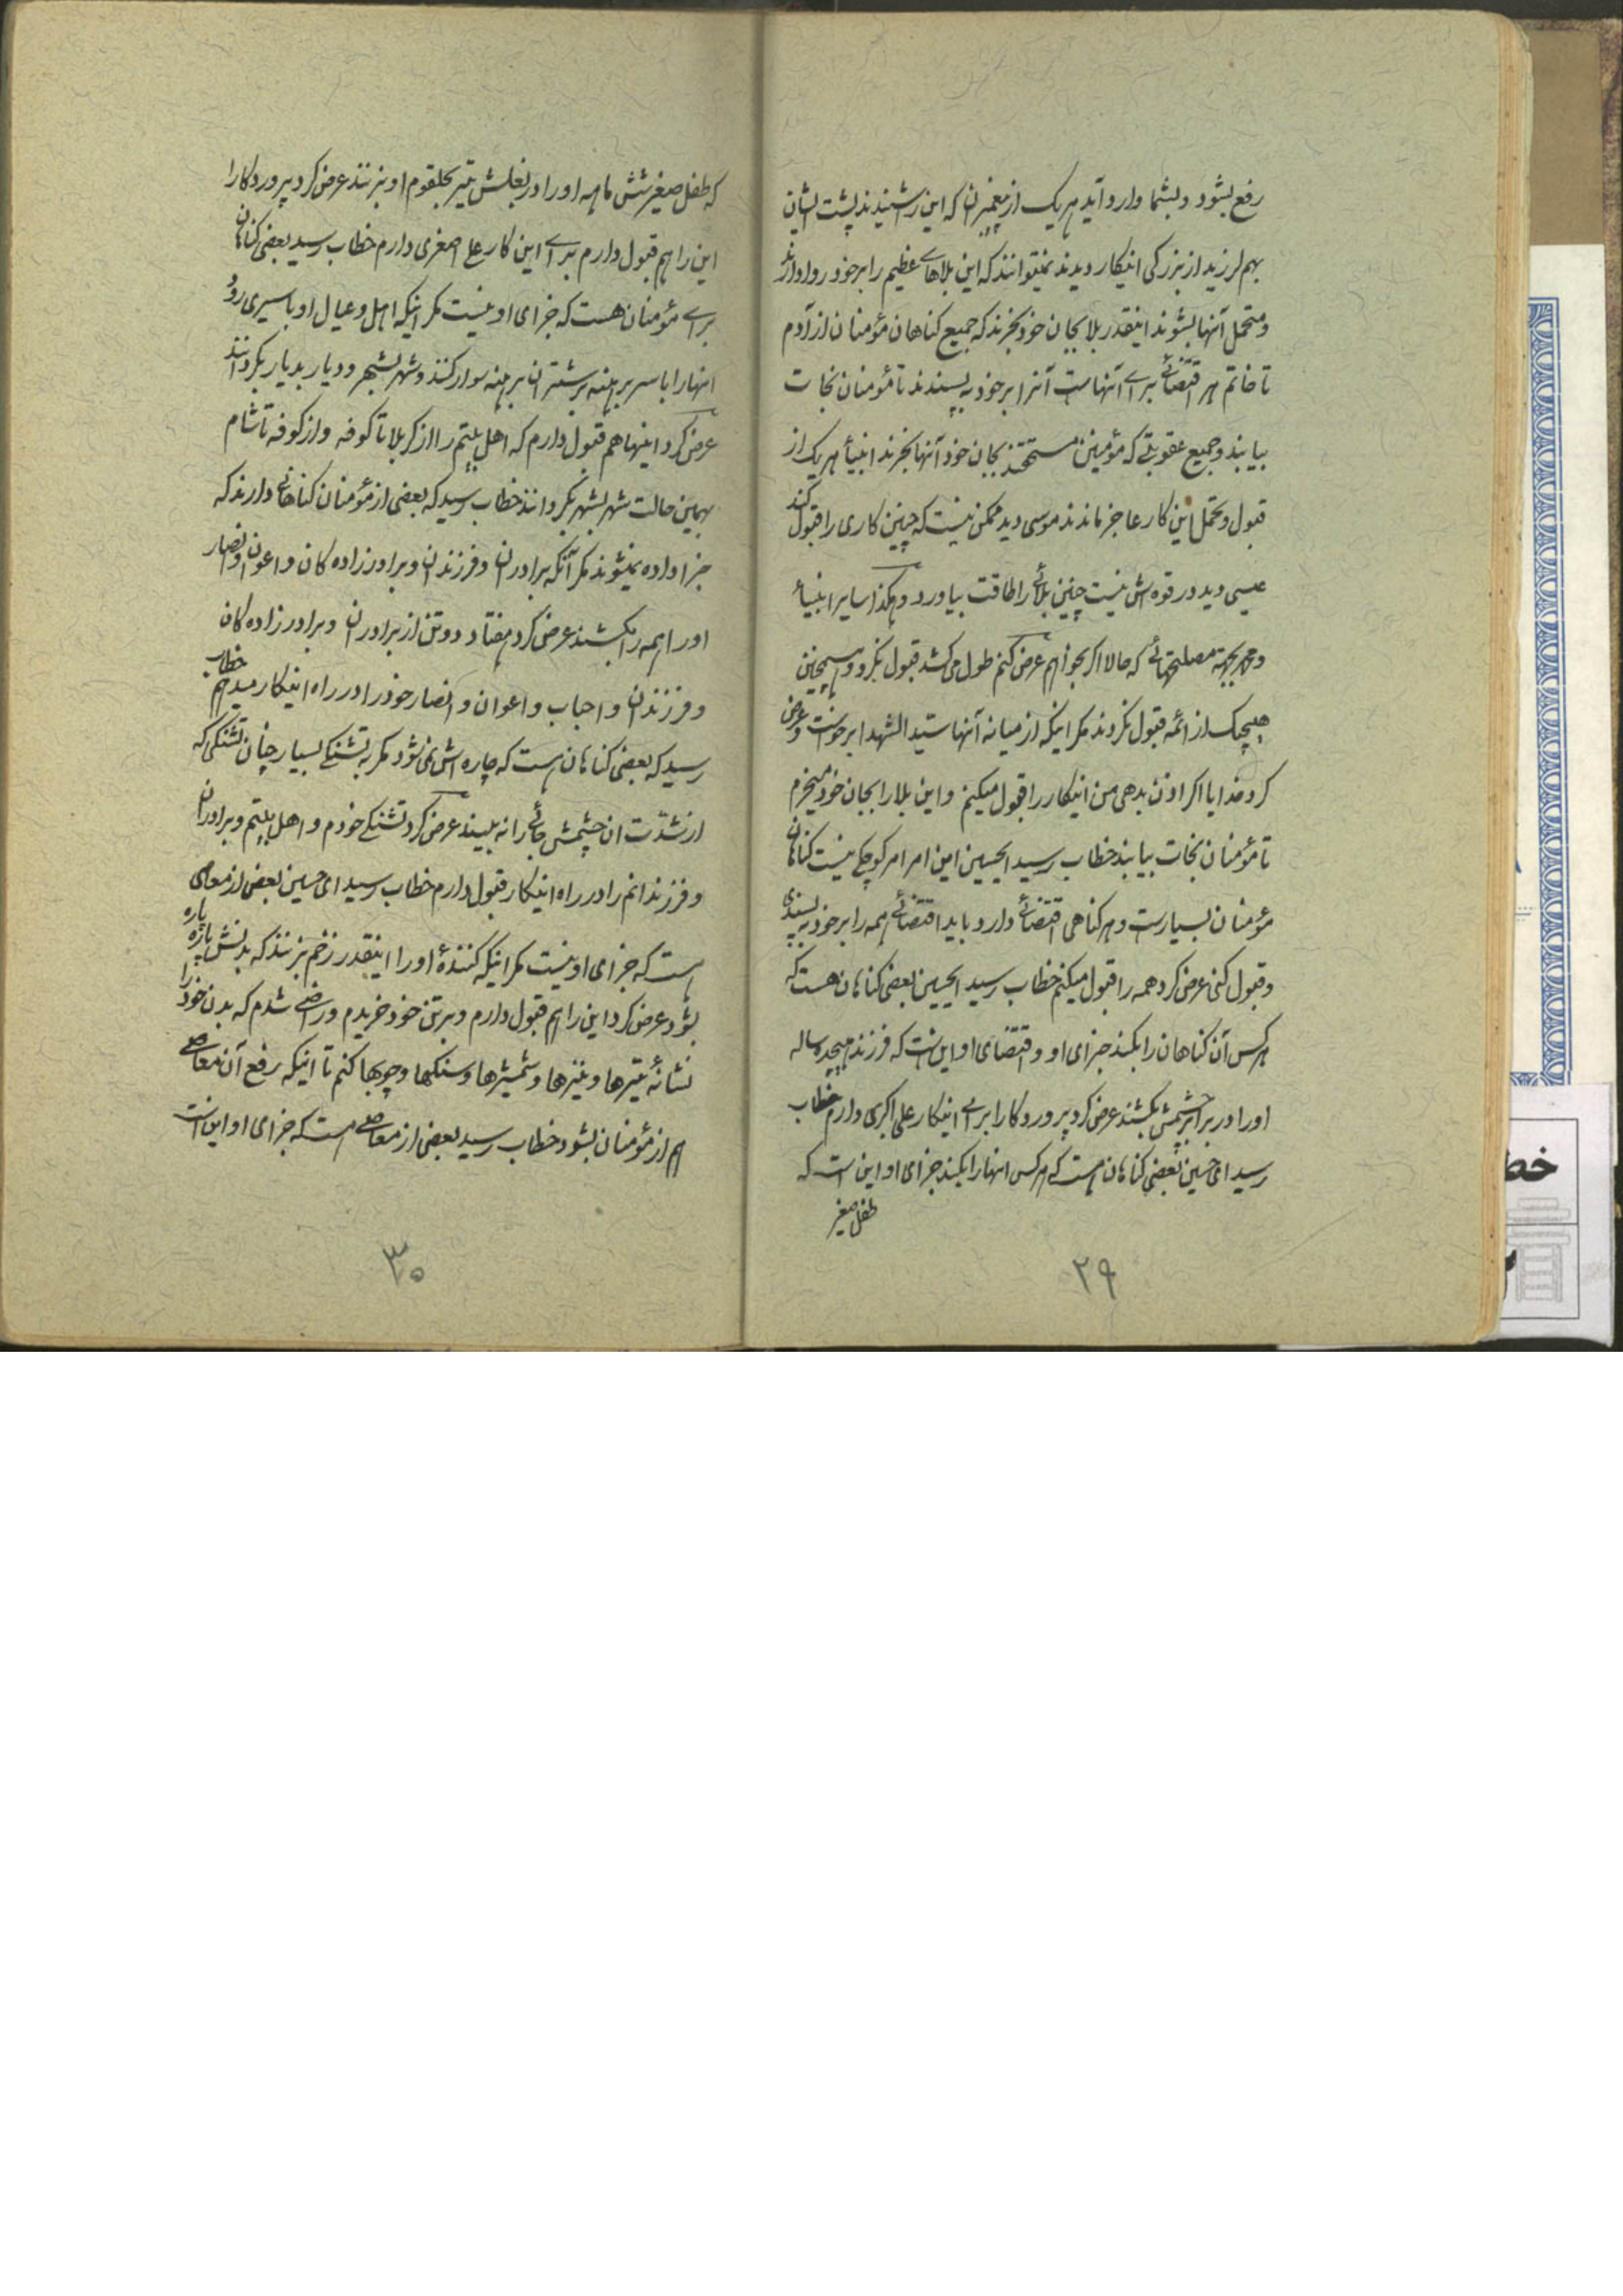 رفع بشود و بشما وارد آید هر یک از پیغمبران که این را شنیدند پشت ایشان
بهم لرزید از بزرگی اینکار دیدند نمیتوانند که این بلاهای عظیم را بر خود روا دارند
و متحمل آنها بشوند اینقدر بلا بجان خود بخرند که جمیع کناهان مؤمنان از آدم
تا خاتم هر اقتضائی برای آنهاست آنرا بر خود به پسندند تا مؤمنان نجات
بیابند و جمیع عقوبتی که مؤمنین مستحقند بجان خود آنها بخرند انبیأ هر یک از
قبول و تحمل این کار عاجز ماندند موسی دید ممکن نیست که چنین کاری را قبول کند
عیسی دید در قوه اش نیست چنین بلائی را طاقت بیاورد و هکذا سایر انبیأ
و بجهة مصلحتهائی که حالا اکر بخواهم عرض کنم طول می کشد قبول نکرد و همچنین
هیچیک از ائمه قبول نکردند مکر اینکه از میانه آنها سید الشهدا برخواست و عرض
کرد خدایا اکر اذن بدهی من اینکار را قبول میکنم و این بلا را بجان خود میخرم
تا مؤمنان نجات بیابند خطاب رسید ایحسین این امر امر کوچکی نیست کناهان
مؤمنان بسیارست و هر کناهی اقتضائی دارد باید اقتضائی همه را بر خود به پسندی
و قبول کنی عرض کرد همه را قبول میکنم خطاب رسید ایحسین بعضی کناهان هست که
هر کس آن کناهان را بکند جزای او و اقتضای او این است که فرزند هیجده ساله
او را در برابر چشمش بکشند عرض کرد پروردکارا برای اینکار علی اکبری دارم خطاب
رسید ای حسین بعضی کناهان هست که هر کس انها را بکند جزای او این است که
طفل صغیر
۲۹
که طفل صغیر شش ماهه او را در بغلش تیر بحلقوم او بزنند عرض کرد پروردکارا
این را هم قبول دارم برای این کار علی اصغری دارم خطاب رسید بعضی کناهان
برای مؤمنان هست که جزای او نیست مکر اینکه اهل و عیال او باسیری رود
انها را با سر برهنه بر شتران برهنه سوار کنند و شهر بشهر و دیار بدیار بکردانند
عرض کرد اینها هم قبول دارم که اهل بیتم را از کربلا تا کوفه و از کوفه تا شام
بهمین حالت شهر بشهر بکردانند خطاب رسید که بعضی از مؤمنان کناهانی دارند که
جزا داده نمیشوند مکر آنکه برادران و فرزندان و برادر زاده کان و اعوان و انصار
او را همه را بکشند عرض کرد هفتاد و دو تن از برادران و برادر زاده کان
و فرزندان و احباب و اعوان و انصار خود را در راه اینکار میدهم خطاب
رسید که بعضی کناهان هست که چاره اش نمی شود مکر به تشنکی بسیار چنان تشنکی که
از شدت ان چشمش جائی را نه بیند عرض کرد تشنکی خودم و اهل بیتم و برادران
و فرزندانم را در راه اینکار قبول دارم خطاب رسید ای حسین بعض از معاصی
هست که جزای او نیست مکر اینکه کنندهٔ او را اینقدر زخم بزنند که بدنش پاره پاره
بشود عرض کرد این را هم قبول دارم و بر تن خود خریدم و راضی شدم که بدن خود را
نشانهٔ تیرها و نیزها و شمشیرها و سنکها و چوبها کنم تا اینکه رفع آن معاصی
هم از مؤمنان بشود خطاب رسید بعضی از معاصی هست که جزای او این است
۳۰
خط